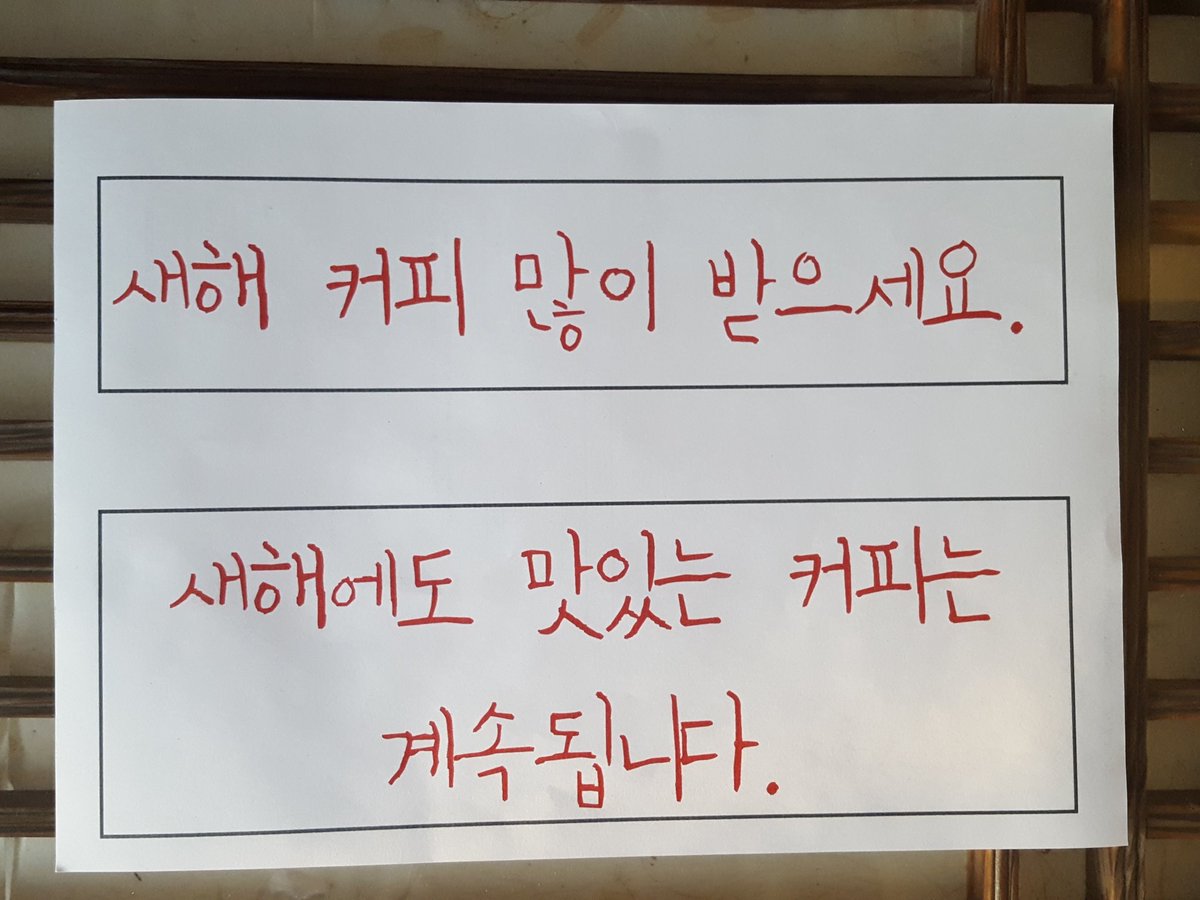 새해 커피 많이 받으세요.
새해에도 맛있는 커피는
계속됩니다.